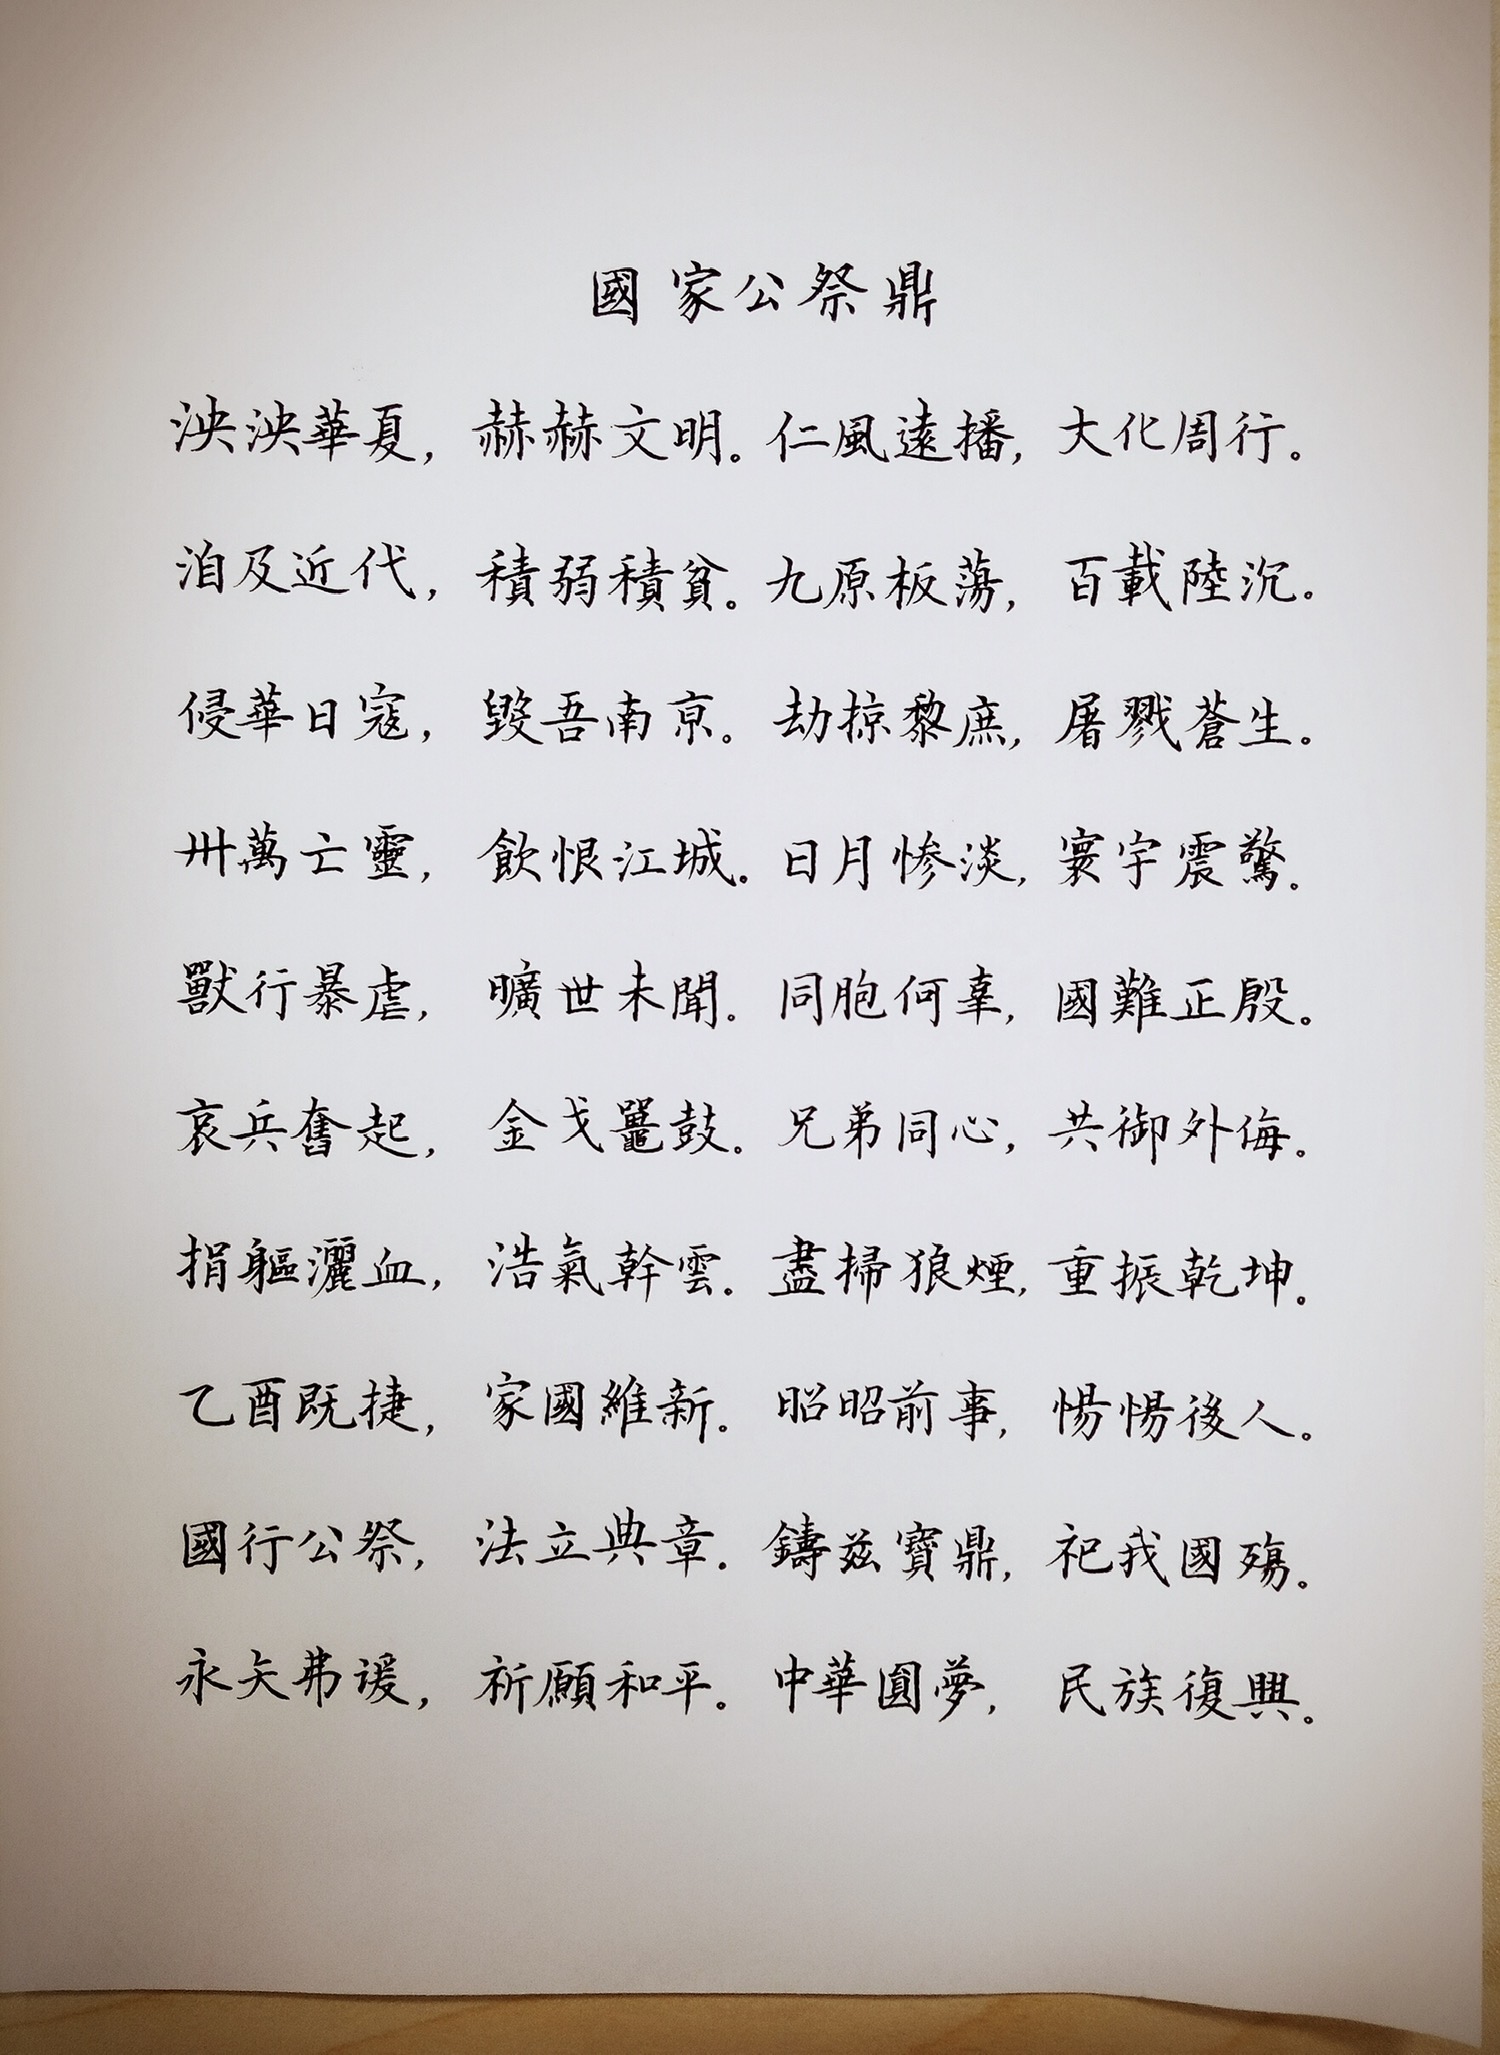 國家公祭鼎
泱泱華夏，赫赫文明。仁風遠播，大化周行。
洎及近代，積弱積貧。九原板蕩，百載陸沉。
侵華日寇，毀吾南京。劫掠黎庶，屠戮蒼生。
卅萬亡靈，飲恨江城。日月惨淡，寰宇震驚。
獸行暴虐，曠世未聞。同胞何辜，國難正殷。
哀兵奮起，金戈鼉鼓。兄弟同心，共御外侮。
捐軀灑血，浩氣幹雲。盡掃狼煙，重振乾坤。
乙酉既捷，家國維新。昭昭前事，惕惕後人。
國行公祭，法立典章。鑄兹寶鼎，祀我國殤。
永矢弗谖，祈願和平。中華圓夢，民族復興。